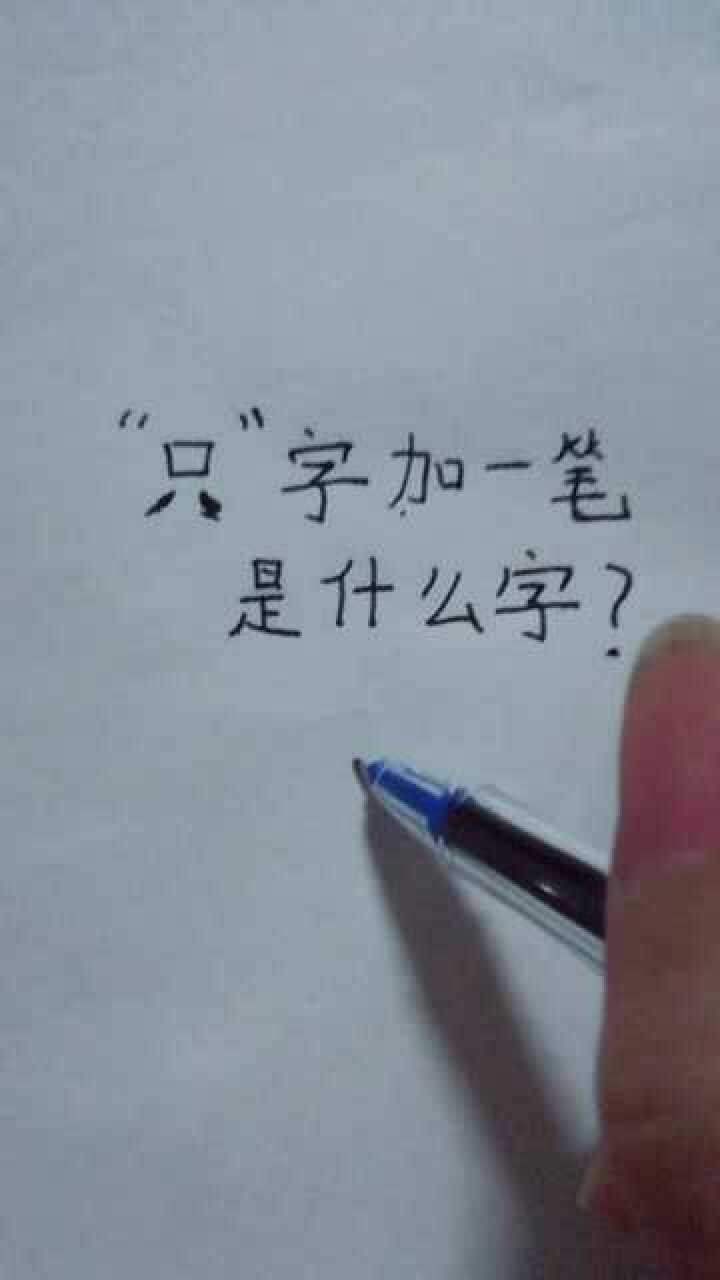 “只”字加一笔
是什么字?